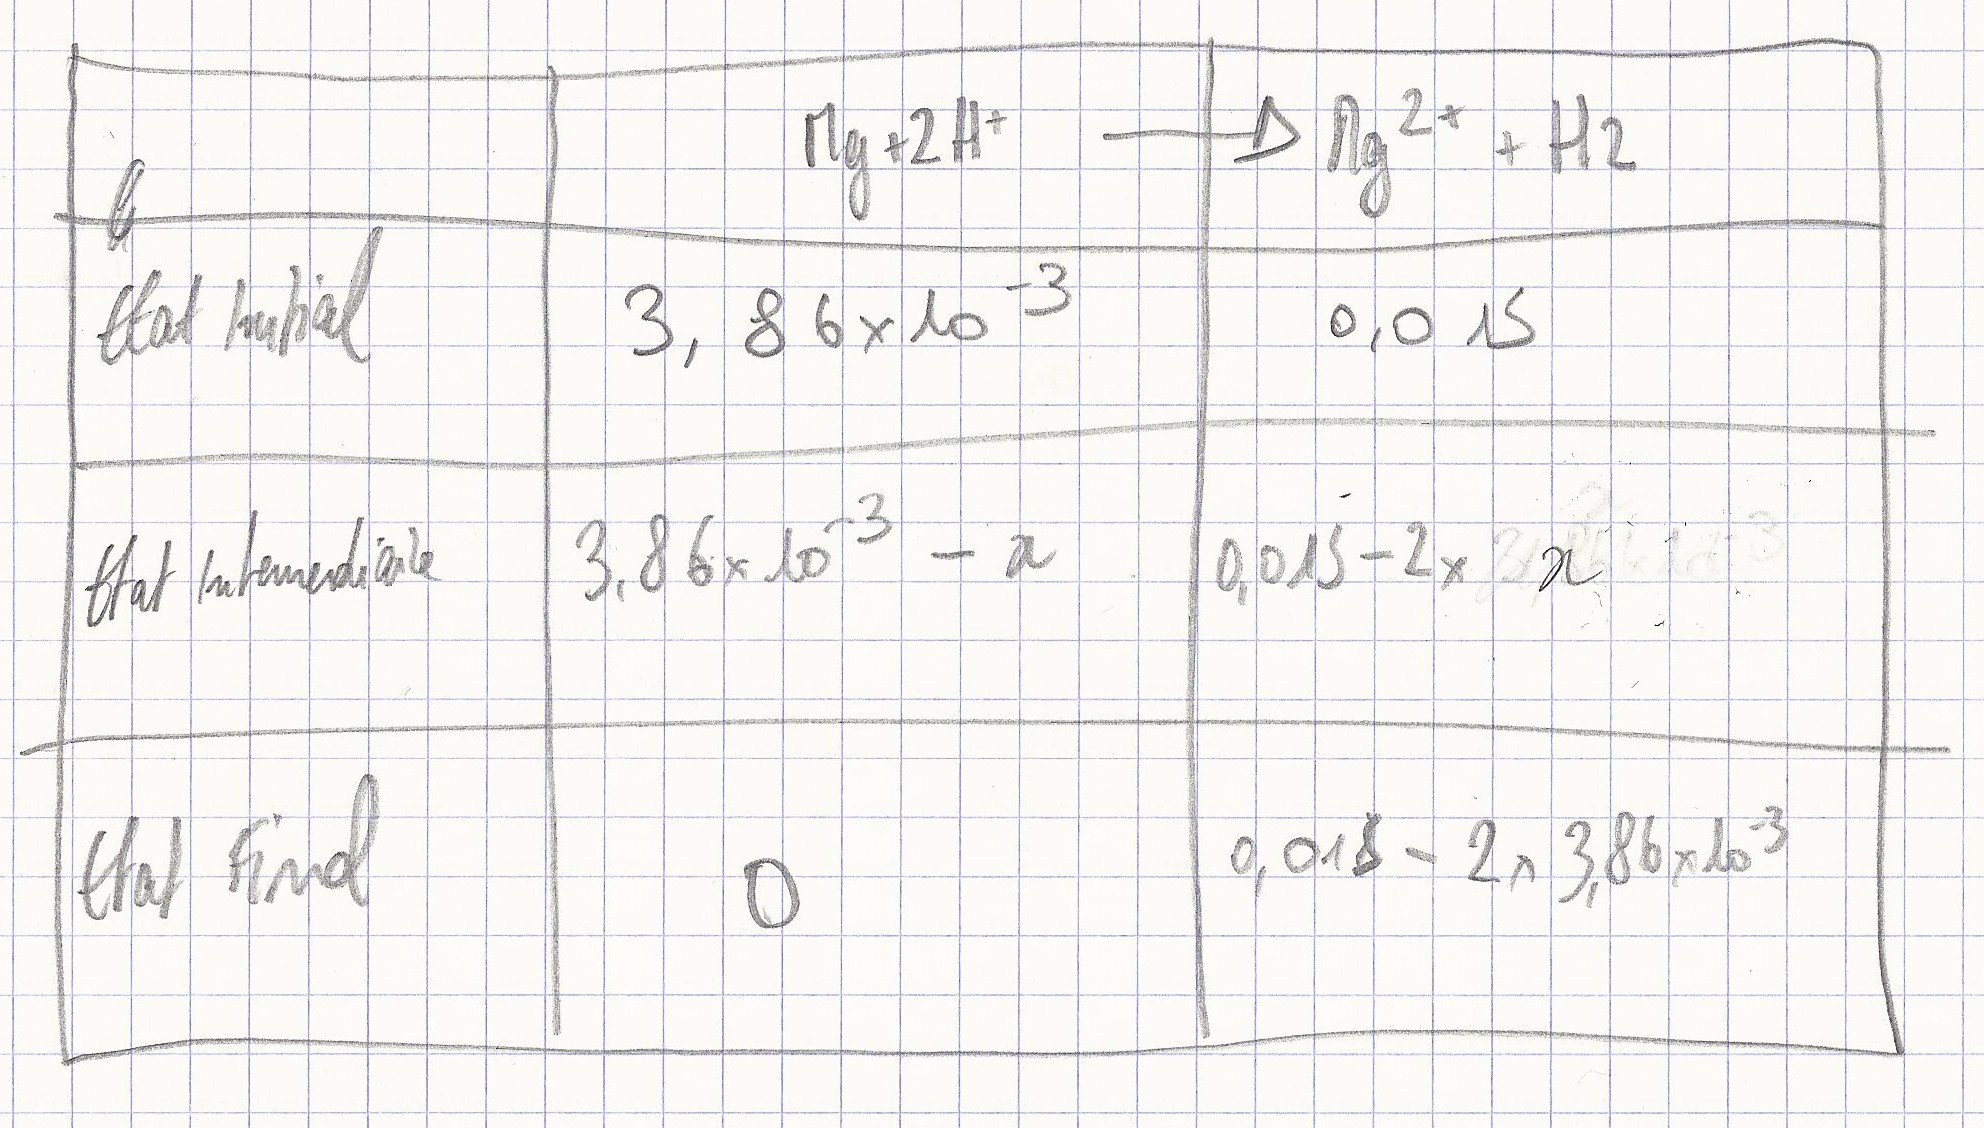 Mg + 2H⁺ → Mg²⁺ + H2
Etat Initial 3,86 x 10⁻³ 0,015
Etat Intermédiaire 3,86 x 10⁻³ - x 0,015 - 2 x x
Etat Final 0 0,015 - 2 x 3,86 x 10⁻³